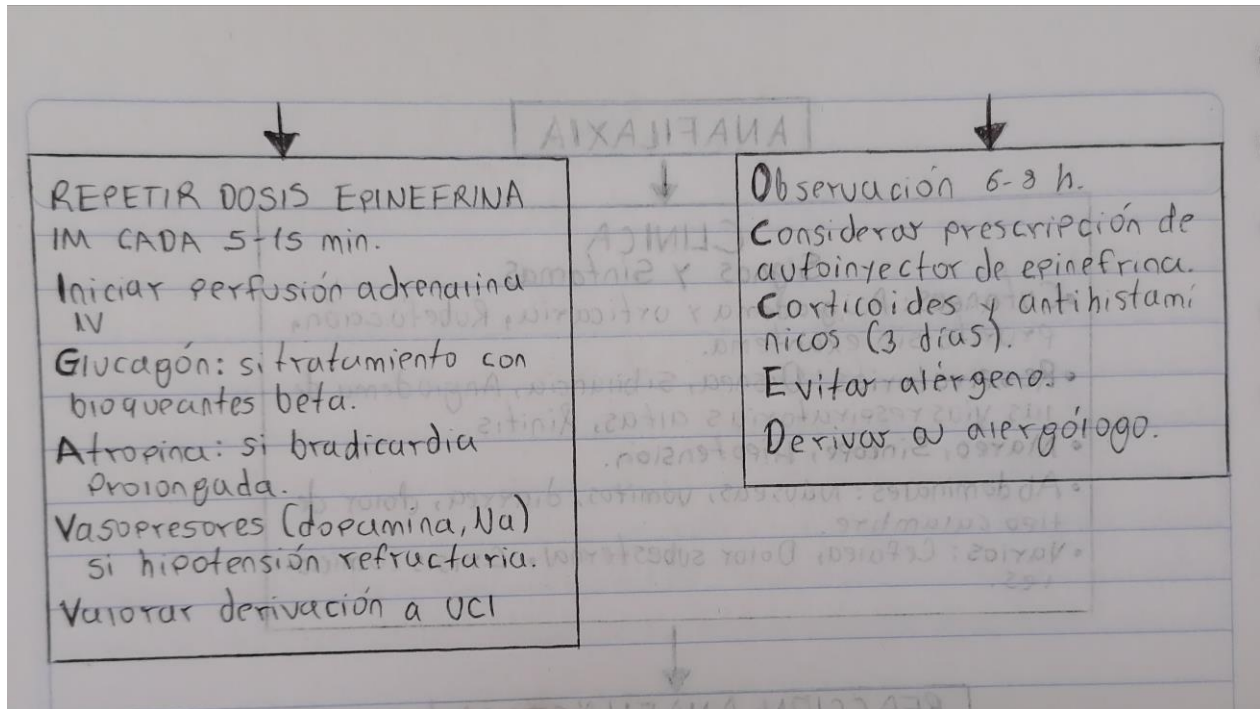 REPETIR DOSIS EPINEFRINA
IM CADA 5-15 min.
Iniciar perfusión adrenalina
IV
Glucagón: si tratamiento con
bloqueantes beta.
Atropina: si bradicardia
prolongada.
Vasopresores (dopamina, Na)
si hipotensión refractaria.
Valorar derivación a UCI
Observación 6-8 h.
Considerar prescripción de
autoinyector de epinefrina.
Corticóides y antihistamí
nicos (3 días).
Evitar alérgeno.
Derivar a alergólogo.
ANAFILAXIA